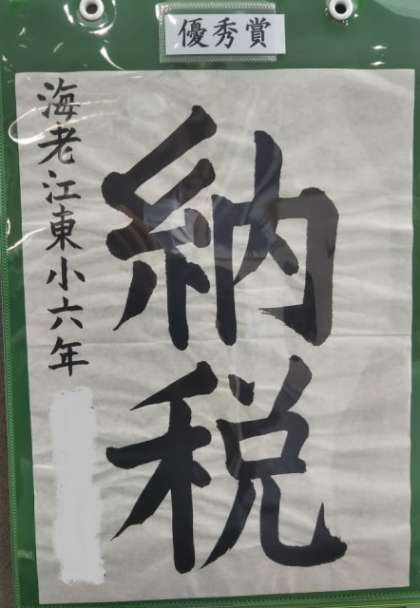 優秀賞
納税
海老江東小六年